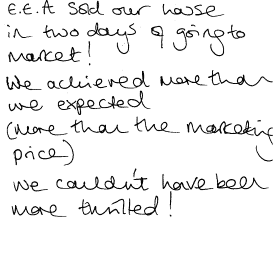 E.E.A sold our house
in two days of going to
market!
We achieved more than
we expected
(more than the marketing
price)
We couldn't have been
more thrilled!